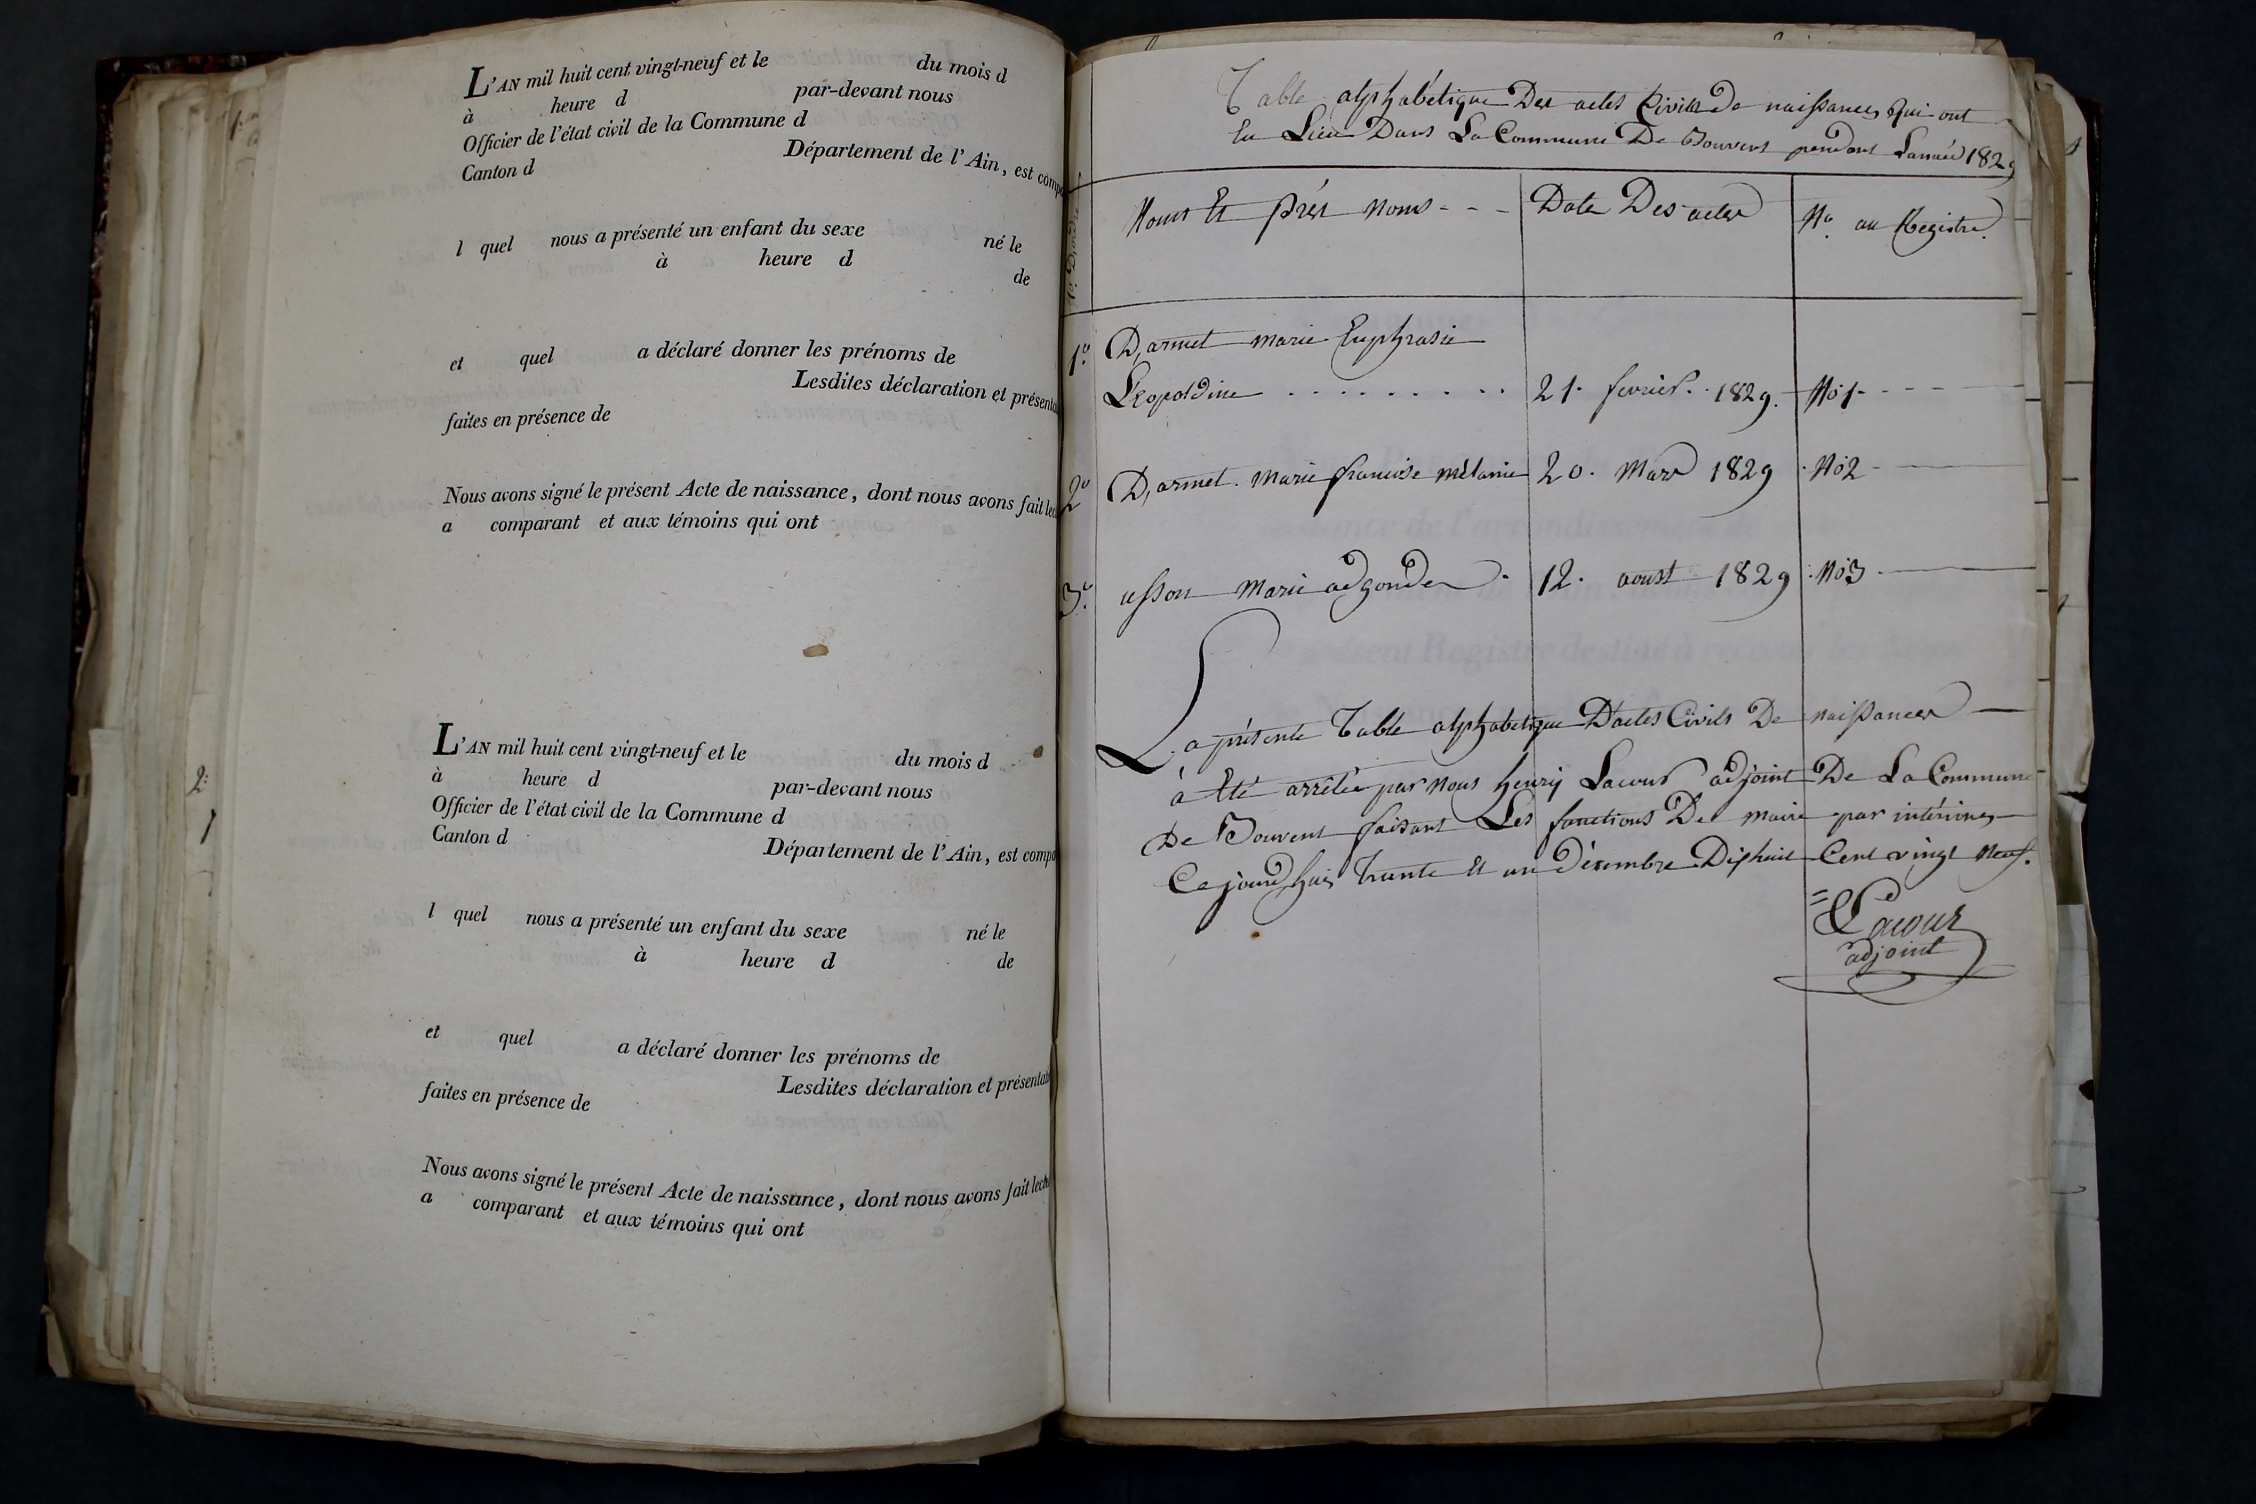 L'AN mil huit cent vingt-neuf et le du mois d
à heure d par-devant nous
Officier de l'état civil de la Commune d
Canton d Département de l'Ain, est comp
l quel nous a présenté un enfant du sexe né le
à heure d de
et quel a déclaré donner les prénoms de
Lesdites déclaration et présenta
faites en présence de
Nous avons signé le présent Acte de naissance, dont nous avons fait lec
a comparant et aux témoins qui ont
L'AN mil huit cent vingt-neuf et le du mois d
à heure d par-devant nous
Officier de l'état civil de la Commune d
Canton d Département de l'Ain, est compa
l quel nous a présenté un enfant du sexe né le
à heure d de
et quel a déclaré donner les prénoms de
Lesdites déclaration et présentat
faites en présence de
Nous avons signé le présent Acte de naissance, dont nous avons fait lect
a comparant et aux témoins qui ont
Table alphabétique Des actes Civils de naissances qui ont
Eu Lieu Dans La Commune De Bouvent pendant Lannée 1829
Noms Et prés noms - - - Date Des actes No. au Registre.
1o. D,armet marie Euphrasie
Léopoldine . . . . . . . . . 21. fevrier. 1829. No 1 - - -
2o D,armet. Marie francoise Mélanie 20. Mars 1829 No 2 -
3o. usson Marie adgonde . 12. aoust 1829 No 3.
La présente Table alphabetique D'actes Civils De naissances
à Eté arrêtée par nous henry Lacour adjoint De La Commune
De Bouvent faisant Les fonctions De maire par intérim,
Ce jourd'hui Trente Et un Décembre Dixhuit Cent vingt neuf.
Lacour
adjoint
2.
1